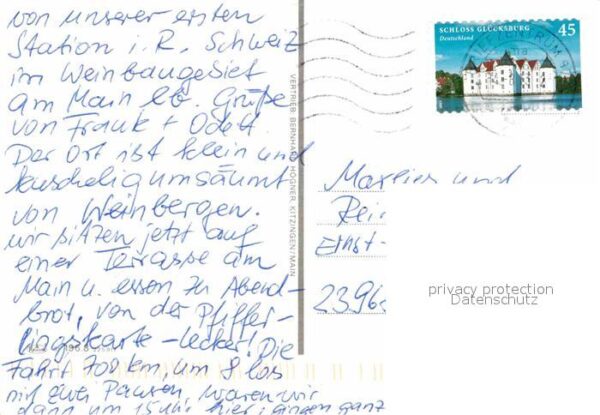 von unserer ersten
Station i. R. Schweiz
im Weinbaugebiet
am Main lb. Grüße
von Frank + Odett.
Der Ort ist klein und
kuschelig umsäumt
von Weinbergen.
Wir sitzen jetzt auf
einer Terrasse am
Main u. essen zu Abend-
brot, von der Pfiffer-
lingskarte - lecker! Die
Fahrt 700 km, um 8 los
mit zwei Pausen, waren wir
dann um 15 Uhr hier, gingen ganz
VERTRIEB BERNHARD HÖGNER, KITZINGEN/MAIN
SCHLOSS GLÜCKSBURG 45
Deutschland
Marlies und
Rei
Ernst-
2396
privacy protection
Datenschutz